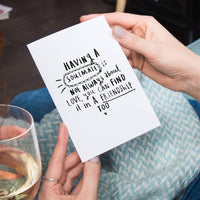 HAVING A
SOULMATE IS
NOT ALWAYS about
LOVE, YOU CAN FIND
it in A FRIENDSHIP
TOO